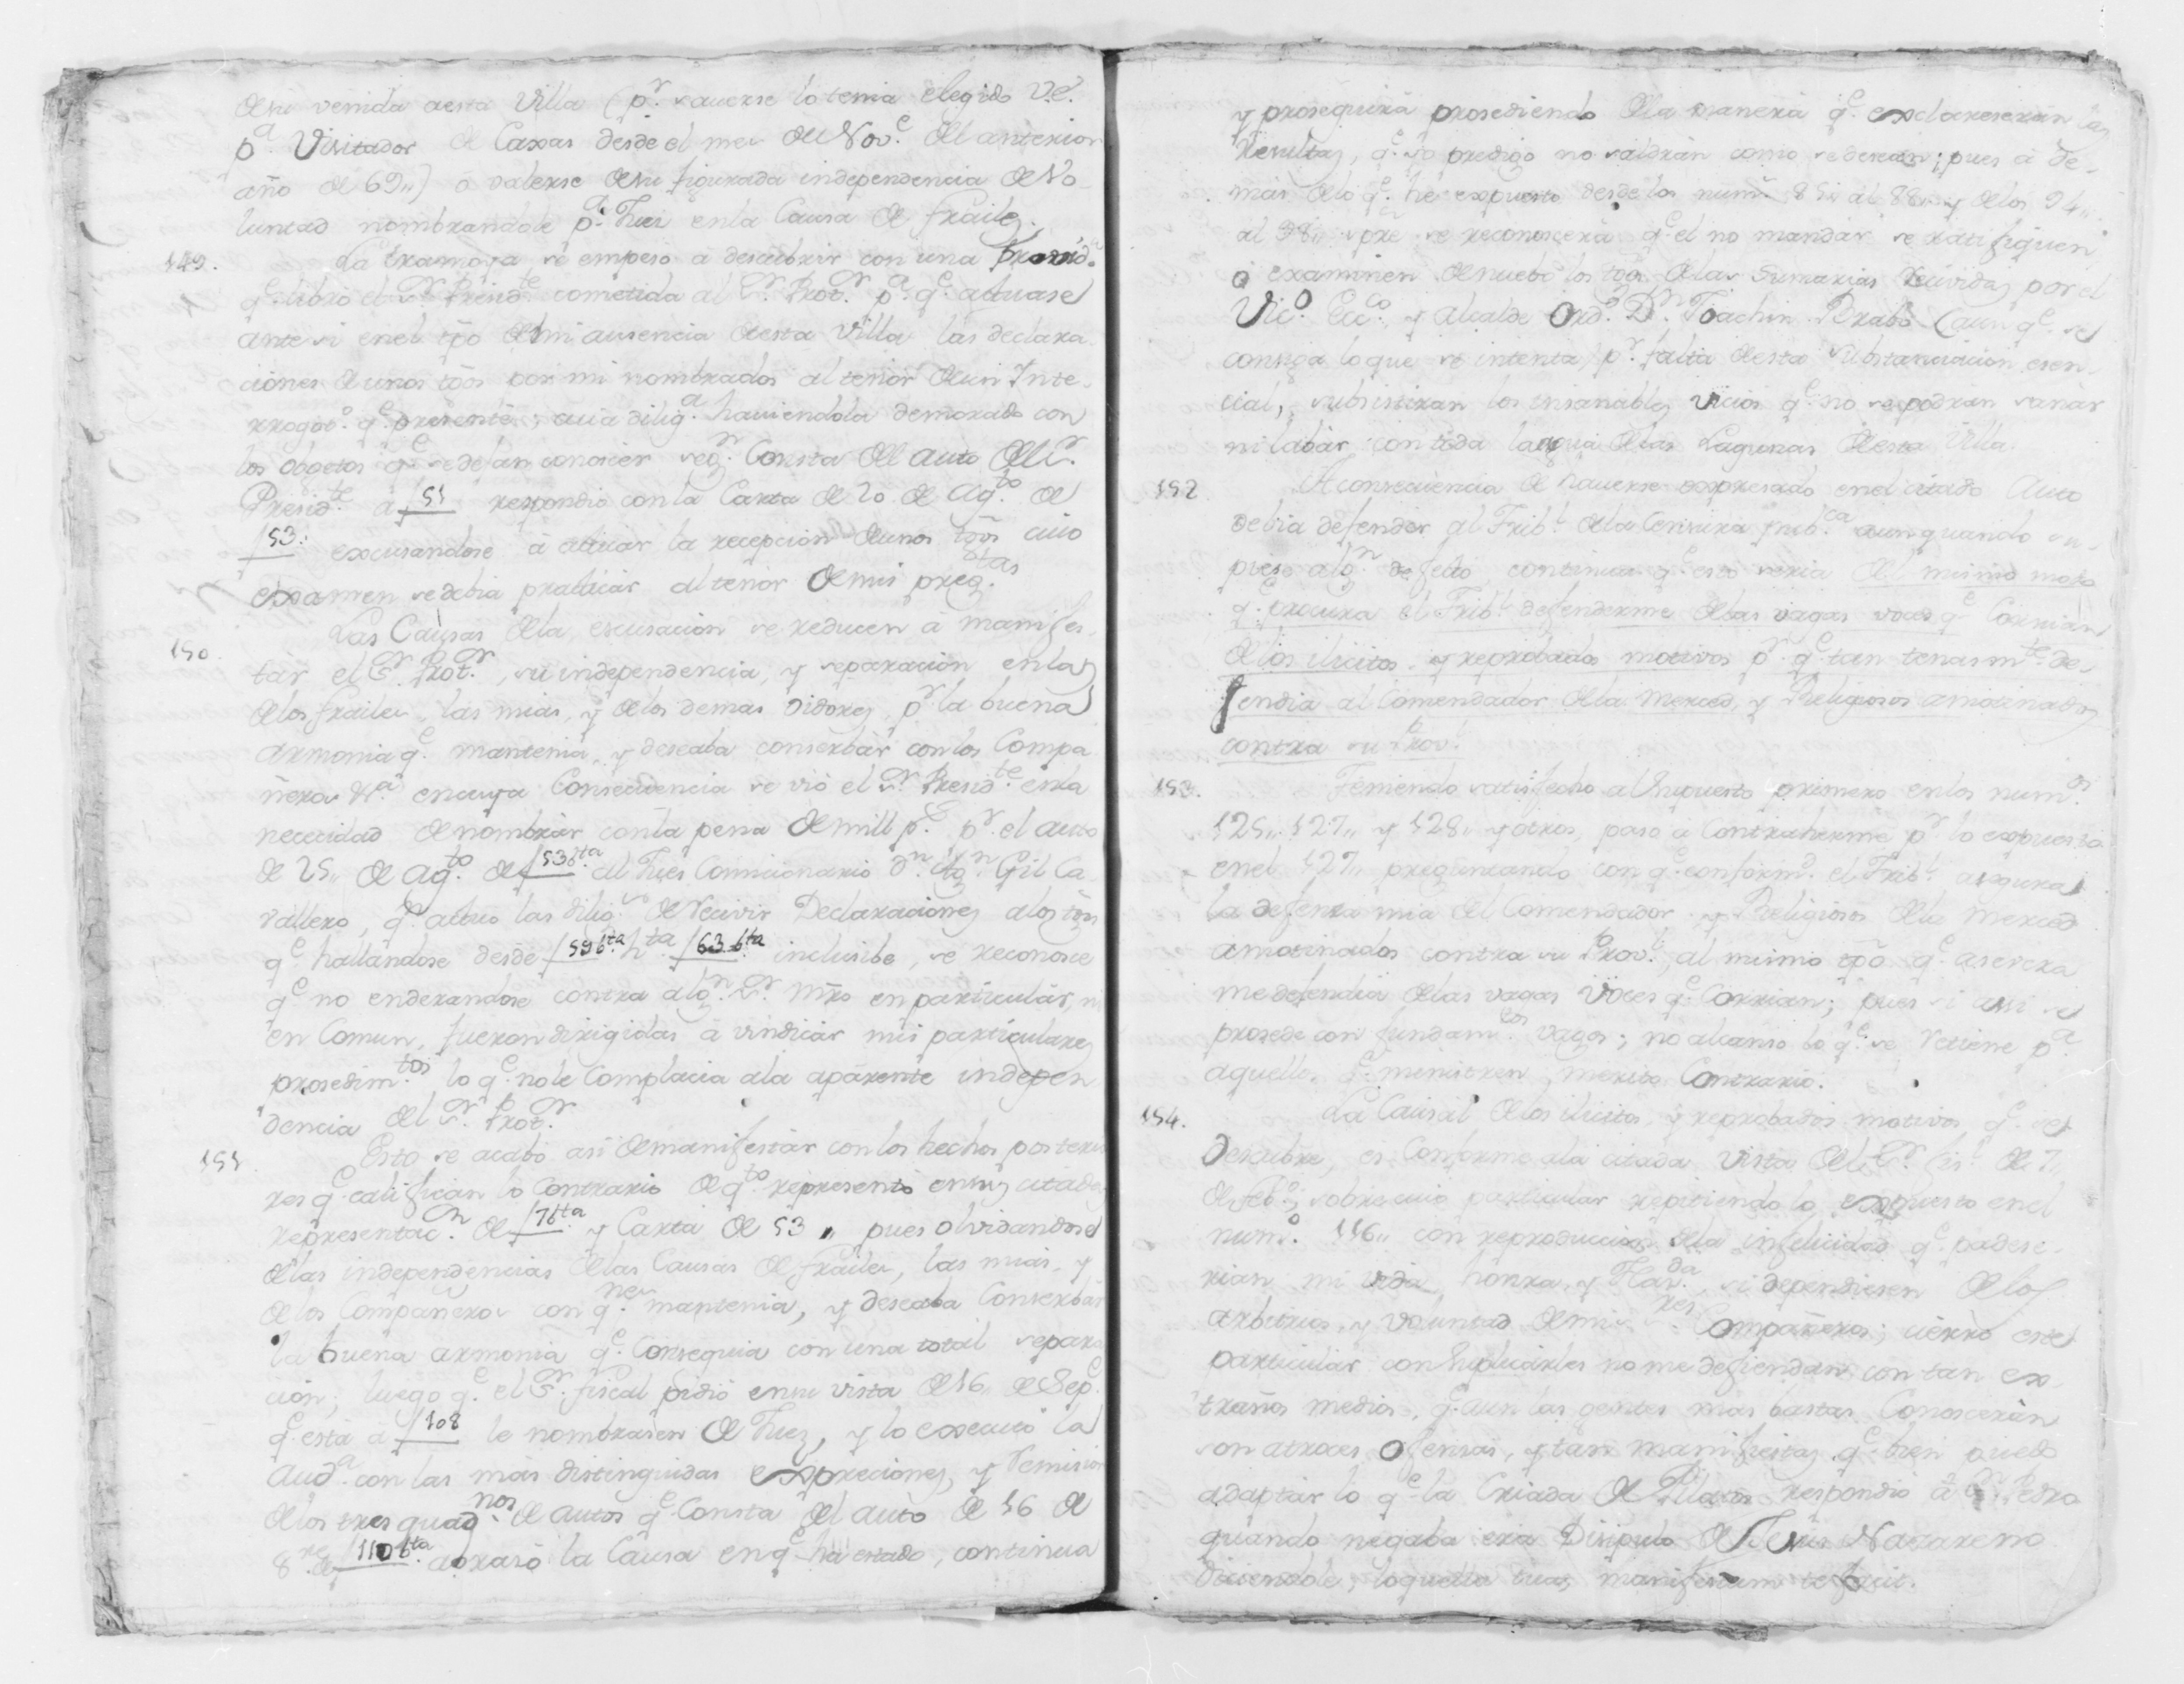 de su venida a esta Villa (p.r saverse lo tenia elegido V.E.
p.a Visitador de Caxas desde el mes de Nov.e del anterior
año de 69,,) o valerse de su figurada independencia de Vo-
luntad nombrandole p.a Juez en la Causa de frailes.
149. La tramoya se empesó a descubrir con una Provid.a
q.e libró el S.r Presid.te cometida al S.r Prot.r p.a q.e actuase
ante si en el tpo de mi ausencia de esta Villa las declara-
ciones de unos tgos por mi nombrados al tenor de un Inte-
rrogat.o q.e presenté; cuia dilig.a haviendola demorado con
los objetos q.e se dejan conocer seg.n Consta del auto del S.r
Presid.te a f 51 respondió con la Carta de 20 de Ag.to de
f 53. excusandose â actuar la recepcion de unos tgos cuio
examen se debia practicar al tenor de mis preg.tas
150. Las Causas de la escusacion se reducen â manifes-
tar el S.r Prot.r, su independencia, y separacion en las
de los frailes, las mias, y de los demas oidores, p.r la buena
armonia q.e mantenia, y deseaba conserbar con los Compa-
ñeros en cuya Consecuencia se vió el S.r Presid.te en la
nececidad de nombrar con la pena de mill p.s p.r el auto
de 25,, de Ag.to de f 53 bta al Jues Comicionario D.n Ag.n Gil Ca-
vallero, q.e actuó las dilig.s de Recivir Declaraciones a los tgos
q.e hallandose desde f 59 bta h.ta f 63 bta inclusibe, se reconose
q.e no enderandose contra alg.n S.r Mro en particular, ni
en Comun, fueron dirigidas â vindicar mis particulares
prosedim.tos lo q.e no le Complacia a la aparente indepen-
dencia del S.r Prot.r
151. Esto se acabó asi de manifestar con los hechos posterio-
res q.e califican lo Contrario de q.to representó en sus citadas
representac.n de f 76 bta y Carta de 53,, pues olvidandose
de las independencias de las Causas de frailes, las mias, y
de los Compañeros con q.nes mantenia, y deseaba Conserbar
la buena armonia q.e Conseguia con una total separa-
cion; luego q.e el S.r fiscal pidió en su vista de 16,, de Sep.e
q.e está â f 108 le nombrasen de Juez, y lo executó la
Aud.a con las mas distinguidas expreciones, y Remision
de los tres quad.nos de autos q.e Consta del auto de 16 de
8.re de f 110 bta abrasó la Causa en q.e ha estado, continua
y proseguirá prosediendo de la manera q.e exclareseran las
Resultas, q.e yo predigo no saldrán como se desean; pues â de-
mas de lo q.e he expuesto desde los num.s 85,, al 88,, y de los 94,,
al 98,, spre se reconoscerá q.e el no mandar se ratifiquen
ó examinen de nuebo los tgos de las Sumarias Recividas por el
Vic.o Ecc.co y Alcalde Ord.o D.n Joachin Brabo (aun q.e se
consiga lo que se intenta) p.r falta de esta substanciacion esen-
cial, subsistiran los insanables vicios q.e no se podran sanar
ni labar con toda la agua de las Lagunas de esta Villa.
152. A consecuencia de haverse expresado en el citado Auto
debia defender al Trib.l de la Censura pub.ca aun quando su-
piese alg.n defecto, continua q.e esto seria del mismo modo
q.e procura el Trib.l defenderme de las vagas voces q.e Corrian
de los ilicitos, y reprobados motivos p.r q.e tan tenasm.te de-
fendia al Comendador de la Merced, y Religiosos amotinados
contra su Prov.l
153. Teniendo satisfecho al Supuesto primero en los num.os
125,, 127,, y 128,, y otros, paso a Contraherme p.r lo expuesto
en el 127,, preguntando con q.e conform.d el Trib.l asegura
la defensa mia del Comendador, y Religiosos de la Merced
amotinados contra su Prov.l, al mismo tpo q.e asevera
me defendia de las vagas voces q.e Corrian; pues si assi se
prosede con fundam.tos vagos; no alcanso lo q.e se Retiene p.a
aquellos q.e ministren merito Contrario.
154. La Causal de los ilicitos, y reprobados motivos q.e se
Descubre, es Conforme a la citada Vista del S.r fis.l de 7,,
de Feb.o; sobre cuio particular repitiendo lo expuesto en el
num.o 116,, con reproduccion de la infelicidad q.e padese-
rian mi vida, honra, y Haz.da si dependiesen de los
arbitrios, y Voluntad de mis S.res Compañeros; cierro este
particular con Suplicarles no me defiendan con tan ex-
traños medios, q.e aun las gentes mas bastas Conoscerán
son atroces ofensas, y tan manifiestas q.e bien puedo
adaptar lo q.e la Criada de Pilatos respondió â S. Pedro
quando negaba era Disipulo de Jesus Nazareno
diciendole, loquella tua, manifestum te facit.